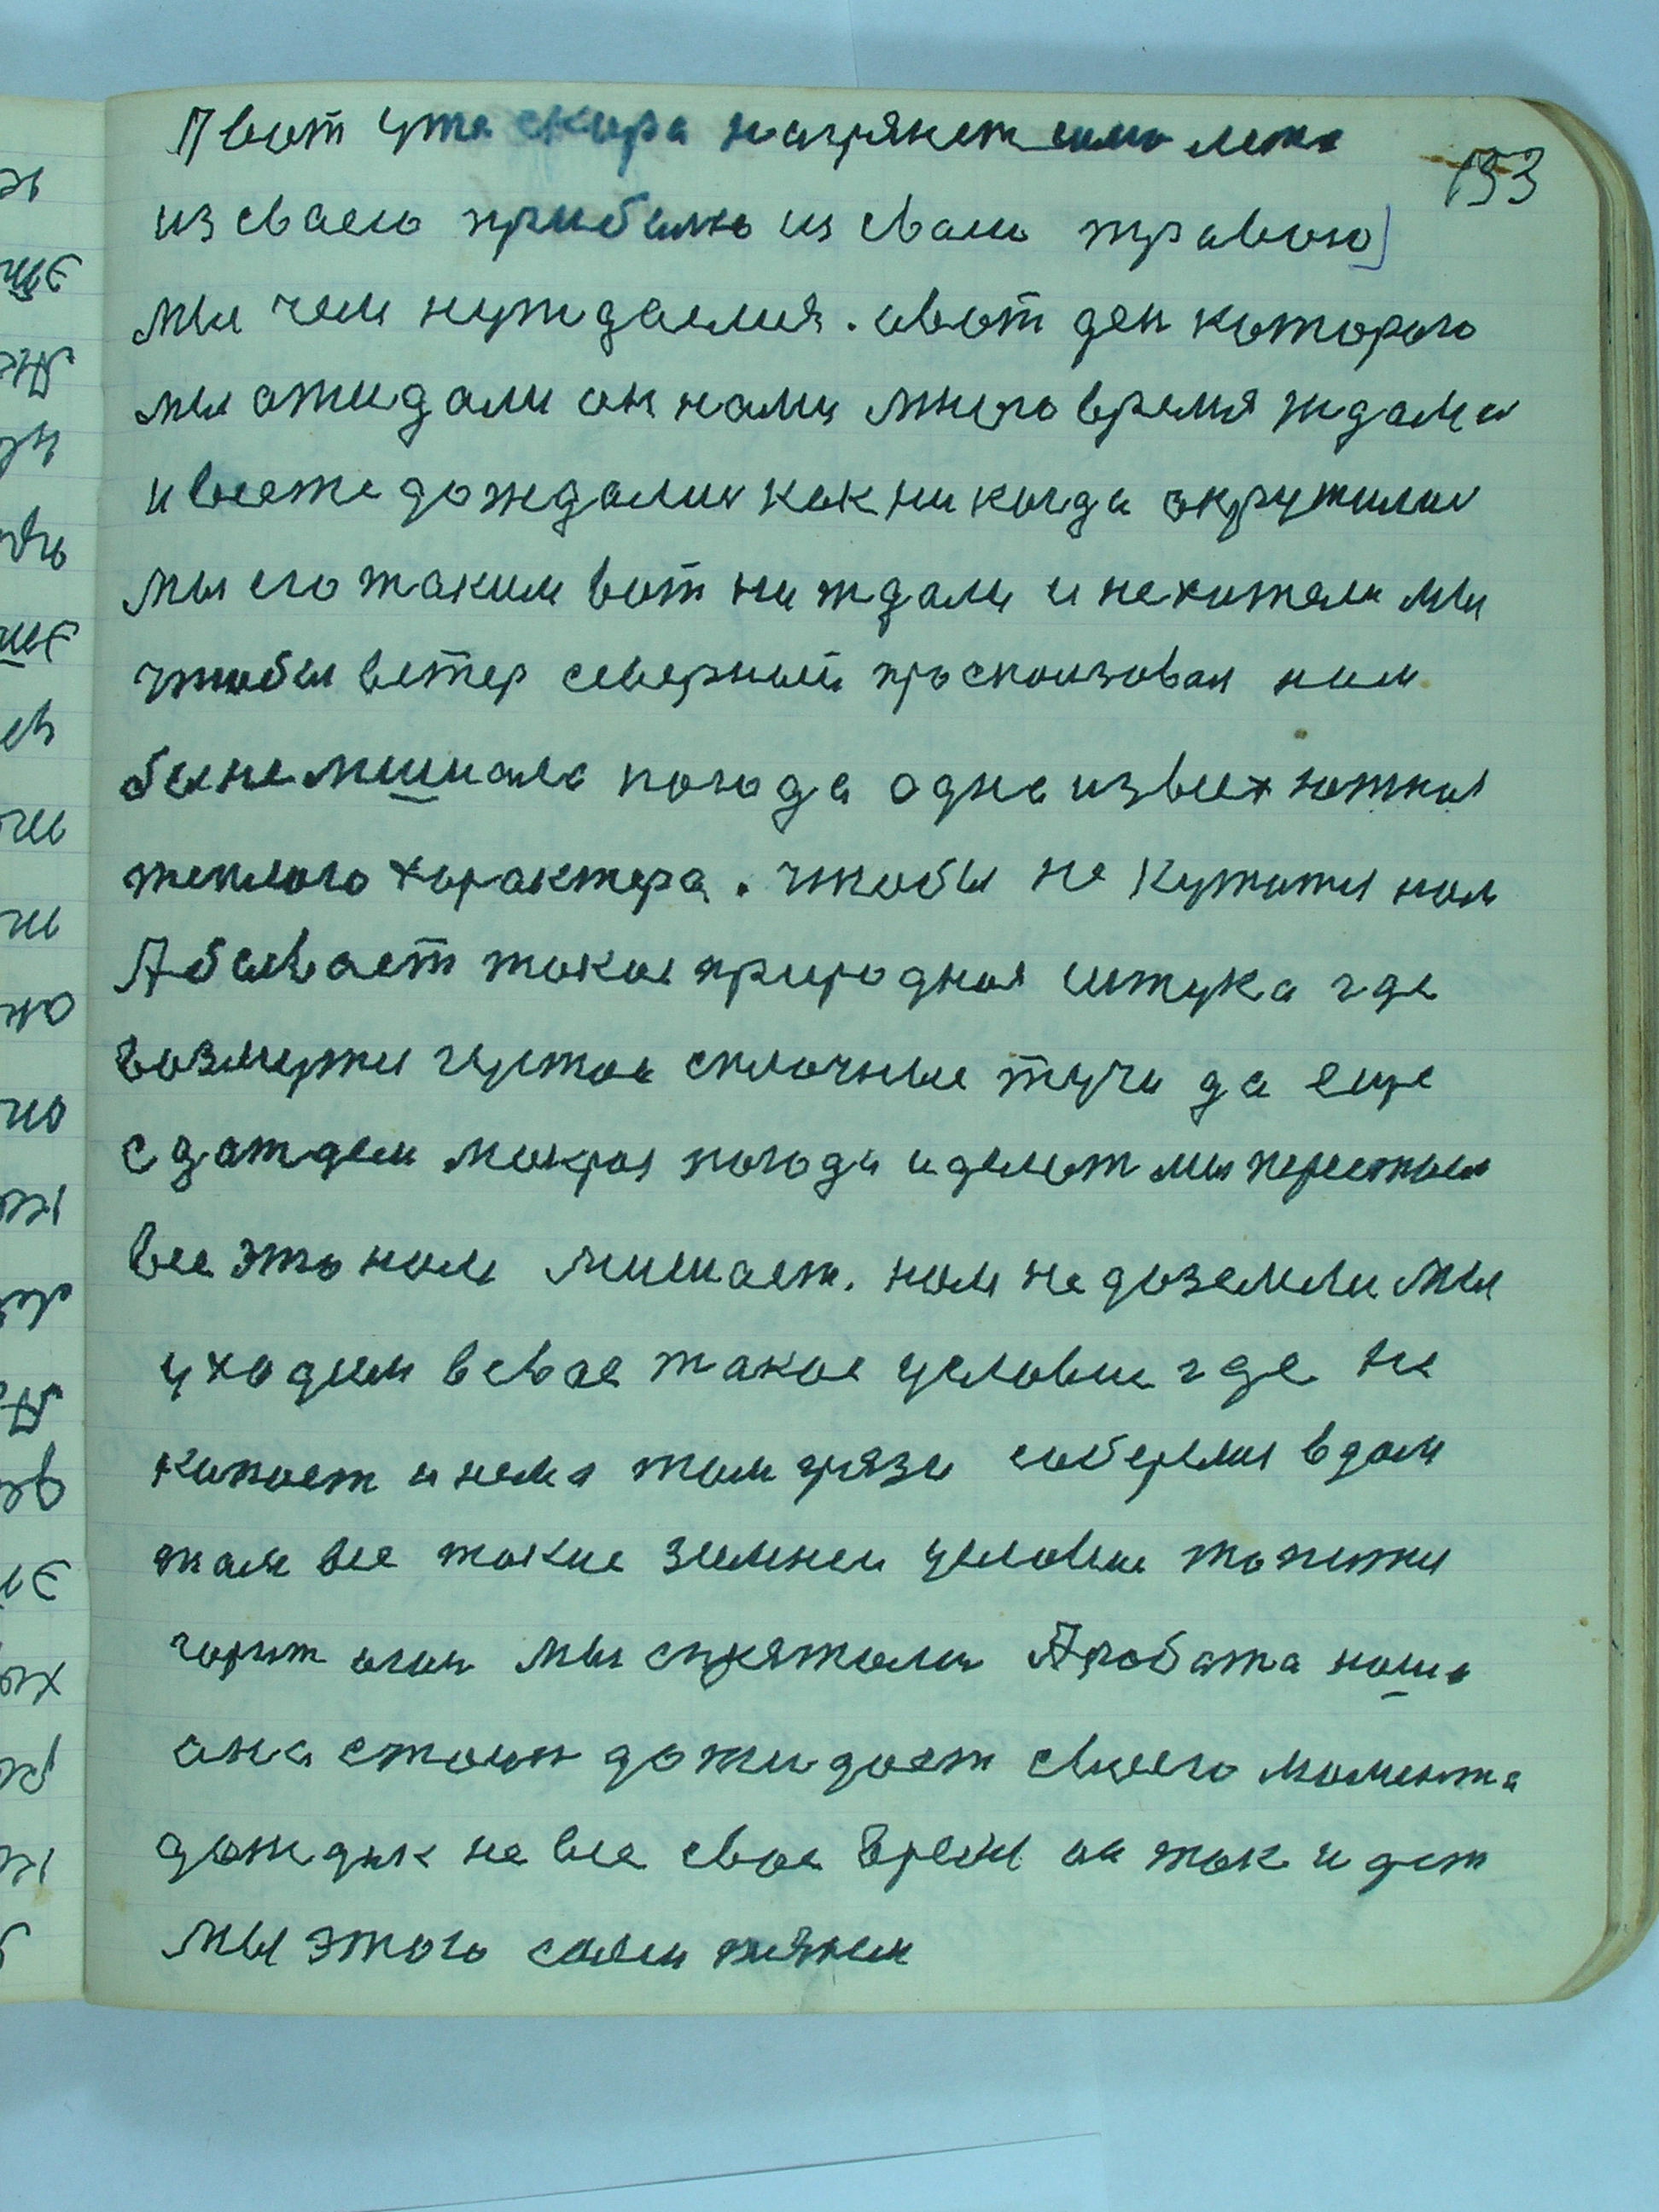 153
А вот уже скора нагрянет само лето
из сваею прибылью из сваею травою
мы чем нуждаемся. ивот ден которого
мы ажидали он нами много время ждался
и все же дождались как никогда акружился
мы его таким вот ни ждали и не хотели мы
чтобы ветер северный проскользовал нам
бы не мишала погода одна из всех южная
теплого характера. чтобы не кутатся нам
А бывает такая природная штука где
возмутся густые сплочные тучи да еще
с дождем мокрая погода и делют мы перестаем
все это нам мишает. нам не до земли мы
уходим в свое такое условие где не
капает и нема там грязи соберемся в дом
там все такие зимнеи условии топится
горит огонь мы спряталися А работа наша
она стоит дожидает своего момента
дождик не все свое время он так идет
мы этого сами тянем